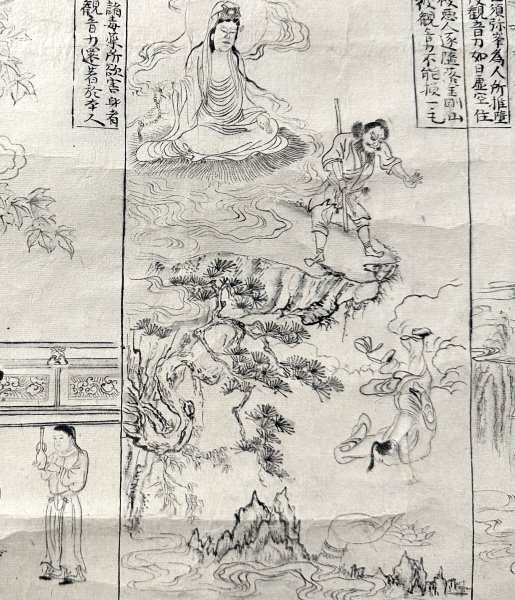 須弥峯為人所推墮
観音力如日虚空住
被悪人逐墮落金剛山
彼観音力不能損一毛
諸毒薬所欲害身者
観音力還着於本人